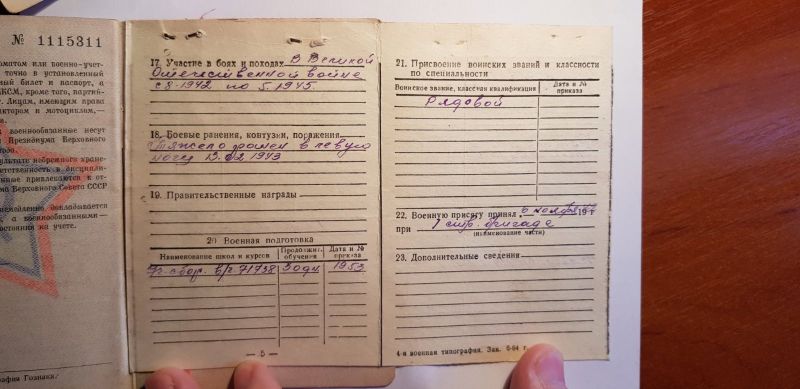 № 1115311
оматом или военно-учет-
точно в установленный
ный билет и паспорт, а
КСМ, кроме того, партий-
Лицам, имеющим права
актором и мотоциклом,—
военнообязанные несут
Президиума Верховного
зультате небрежного хране-
етственность в дисципли-
ные привлекаются к от-
ма Верховного Совета СССР
немедленно докладывается
а военнообязанными—
состоянии на учете.
графия Гознака.
17. Участие в боях и походах В Великой
Отечественной войне
с 3.1942 по 5.1945
18. Боевые ранения, контузии, поражения
Тяжело ранен в левую
ногу 13.02 1943
19. Правительственные награды
20 Военная подготовка
Наименование школ и курсов Продолжит. обучения Дата и № приказа
сбор. в/ч 71738 30 дн. 1953
— 5 —
21. Присвоение воинских званий и классности
по специальности
Воинское звание, классная квалификация Дата и № приказа
Рядовой
22. Военную присягу принял 19 г.
при 1 стр. бригаде
(наименование части)
23. Дополнительные сведения
4-я военная типография. Зак. 6-64 г.